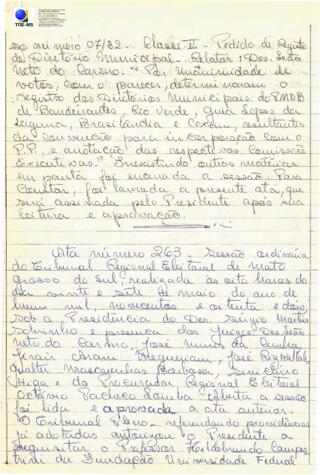 TRE-MS
so número 07/82 - Classe II - Pedido de Registro
de Diretório Municipal. - Relator: Des. Leão
Neto do Carmo. - "Por unanimidade de
votos, com o parecer, determinaram o
registro dos Diretórios Municipais do PMDB
de Bandeirantes, Rio Verde, Guia Lopes da
Laguna, Brasilândia e Coxim, resultantes
da Convenção para incorporação com o
P.P., e anotação das respectivas Comissões
Executivas." Inexistindo outras matérias
em pauta foi encerrada a sessão. Para
Constar, foi lavrada a presente ata, que
será assinada pelo Presidente após sua
leitura e aprovação.
Ata número 263. Sessão ordinária
do Tribunal Regional Eleitoral de Mato
Grosso do Sul, realizada às oito horas do
dia vinte e sete de maio do ano de
hum mil, novecentos e oitenta e dois,
sob a Presidência do Des. Sérgio Martins
Sobrinho e presença dos Juízes: Des. Leão
Neto do Carmo, José Nunes da Cunha,
Jerair Abram, José
Walter Mascarenhas Barbosa,
Higa e do Procurador Regional Eleitoral
Octávio Pacheco Aberta a sessão
foi lida e aprovada a ata anterior.
O Tribunal Pleno - referendando providências
já adotadas autorizou o Presidente a
requisitar o Professor Hildebrando Campos
da Fundação Universidade Federal